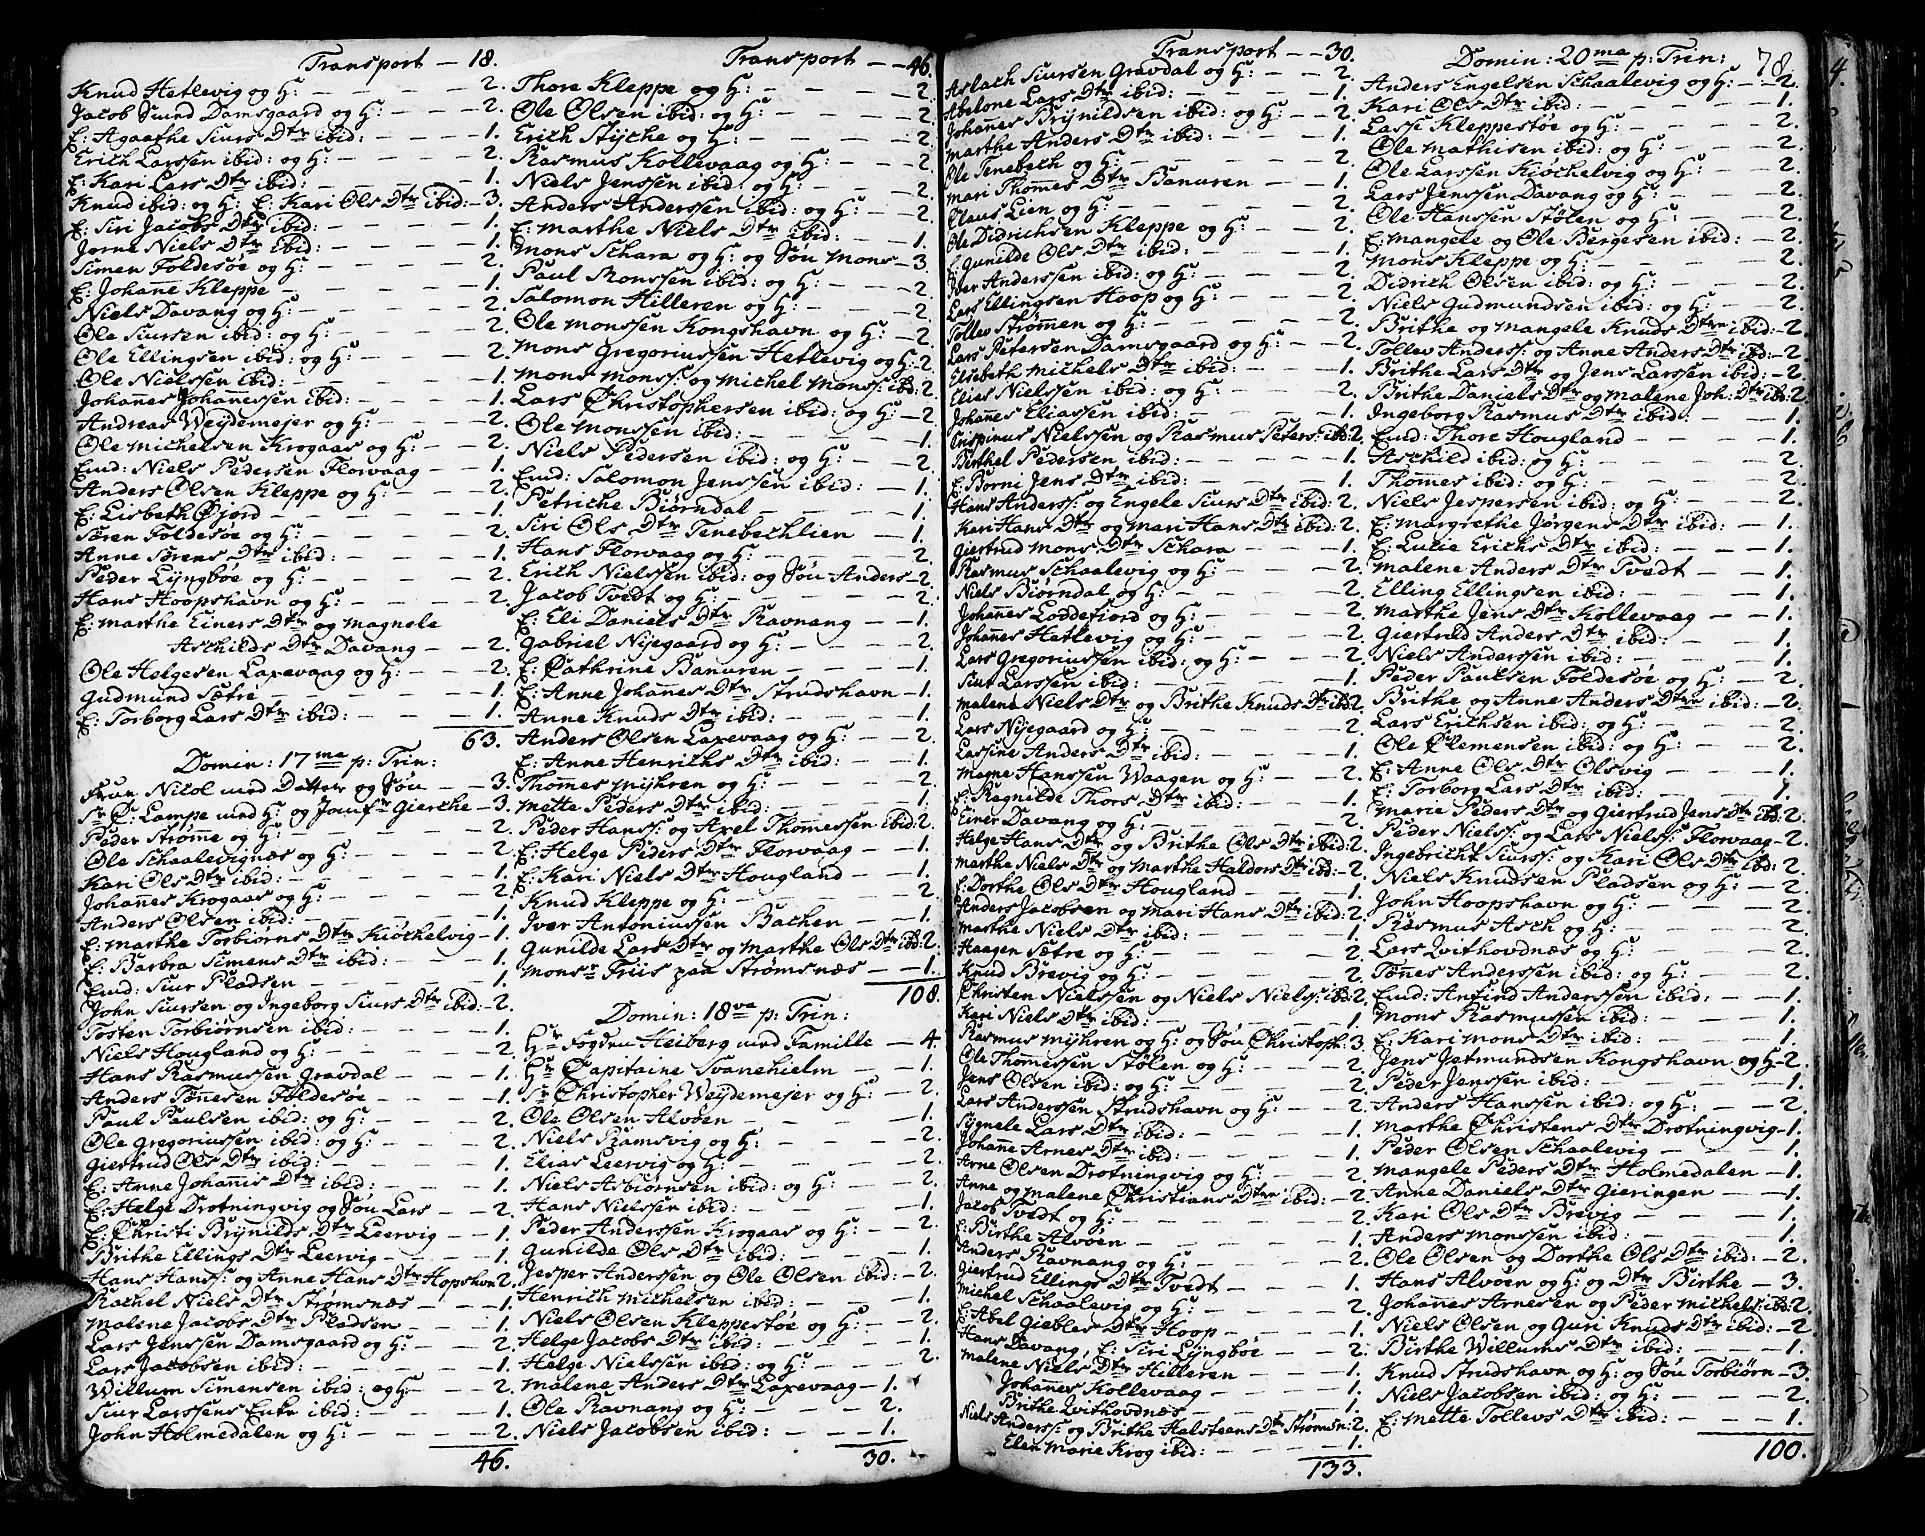 Transport — 18.
Knud Hetlevig og H: — — — 2.
Jacob Svend Damsgaard og H: — — 2.
E: Agaathe Siurs Dtr ibid: — — 1.
Erich Larssen ibid: og H: — — 2.
E: Kari Lars Dtr ibid: — — — 1.
Knud ibid: og H: E: Kari Ols Dtr ibid: — 3.
E: Siri Jacobs Dtr ibid: — — — 1.
Jorne Niels Dtr ibid: — — — 1.
Simen Foldesøe og H: — — — 2.
E: Johane Kleppe — — — 1.
Niels Davang og H: — — — 2.
Ole Siursen ibid: og H: — — — 2.
Ole Ellingsen ibid: og H: — — — 2.
Ole Nielssen ibid: — — — 1.
Johannes Johanessen ibid: — — — 1.
Andreas Weydemejer og H: — — — 2.
Ole Michelsen Krogaas og H: — — 2.
Emd: Niels Pedersen Florvaag — — 1.
Anders Olsen Kleppe og H: — — 2.
E: Lisbeth Øjord — — — 1.
Søren Foldesøe og H: — — — 2.
Anne Sørens Dtr ibid: — — — 1.
Peder Lyngbøe og H: — — — 2.
Hans Hoopshavn og H: — — — 2.
E: Marthe Einers Dtr og Magnele
Aschilds Dtr Davang — — 2.
Ole Helgesen Laxevaag og H: — — 2.
Gudmund Sætre — — — 1.
E: Torborg Lars Dtr ibid: — — — 1.
63.
Domin: 17ma p: Trin:
Frue Nicol med Datter og Søn — 3.
Sr C: Lampe med H: og Jomfr Gierthe — 3.
Peder Strømme og H: — — — 2.
Ole Schaalevignæs og H: — — 2.
Kari Ols Dtr ibid: — — — 1.
Johannes Krogaas og H: — — — 2.
Anders Olsen ibid: — — — 1.
E: Marthe Torbiørns Dtr Kiøchelvig — 1.
E: Barbra Simens Dtr ibid: — — 1.
Emd: Siur Pladsen — — — 1.
John Siursen og Ingeborg Siurs Dtr ibid: — 2.
Tosten Torbiørnsen ibid: — — — 1.
Niels Hougland og H: — — — 2.
Hans Rasmussen Gravdal — — — 1.
Anders Tønesen Foldesøe — — — 1.
Paul Paulsen ibid: og H: — — — 2.
Ole Gregoriussen ibid: og H: — — 2.
Giertrud Ols Dtr ibid: — — — 1.
E: Anne Johannis Dtr ibid: — — 1.
E: Helge Drotningvig og Søn Lars — — 2.
E: Christi Brynilds Dtr Leervig — — 1.
Brithe Ellings Dtr Leervig — — — 1.
Hans Hanss: og Anne Hans Dtr Hopshavn 2.
Rachel Niels Dtr Strømsnæs — — — 1.
Malene Jacobs Dtr Pladsen — — — 1.
Lars Jenssen Damsgaard og H: — — 2.
Lars Jacobsen ibid: — — — 1.
Willum Simensen ibid: og H: — — 2.
Siur Larssens Enke ibid: — — — 1.
John Holmedalen og H: — — — 2.
46.
Transport — — 46.
Thore Kleppe og H: — — — 2.
Ole Olsen ibid: og H: — — — 2.
Erich Styche og H: — — — 2.
Rasmus Kollevaag og H: — — 2.
Niels Jenssen ibid: og H: — — — 2.
Anders Anderssen ibid: og H: — — 2.
E: Marthe Niels Dtr ibid: — — 1.
Mons Schara og H: og Søn Mons — 3.
Paul Monssen ibid: og H: — — 2.
Salomon Hilleren og H: — — — 2.
Ole Monssen Kongshavn og H: — 2.
Mons Gregoriussen Hetlevig og H: — 2.
Mons Monss: og Michel Monss: ibd: 2.
Lars Christophersen ibid: og H: — 2.
Ole Monssen ibid: — — — 1.
Niels Pedersen ibid: og H: — — 2.
Emd: Salomon Jenssen ibid: — — 1.
Petriche Biørndal — — — 1.
Siri Ols Dtr Tenebechlien — — 1.
Hans Florvaag og H: — — — 2.
Erich Nielssen ibid: og Søn Anders — 2.
Jacob Tvedt og H: — — — 2.
E: Eli Daniels Dtr Ravnang — — 1.
Gabriel Nijegaard og H: — — — 2.
E: Cathrine Banuren — — — 1.
E: Anne Johannes Dtr Strudshavn — 1.
Anne Knuds Dtr ibid: — — — 1.
Anders Olsen Laxevaag og H: — — 2.
E: Anne Henrichs Dtr ibid: — — 1.
Thommes Myhren og H: — — — 2.
Mette Peders Dtr ibid: — — — 1.
Peder Hanss: og Axel Thommessen ibid: 2.
E: Helge Peders Dtr Florvaag — — 1.
E: Kari Niels Dtr Hougland — — 1.
Knud Kleppe og H: — — — 2.
Iver Antoniussen Bachen — — 1.
Gunilde Lars Dtr og Marthe Ols Dtr ibd: 2.
Monsr Friis paa Strømsnæs — — 1.
108.
Domin: 18va p: Trin:
Hr Fogden Heiberg med Famille — 4.
Hr Capitaine Svanehielm — — 1.
Sr Christopher Weydemejer og H: — 2.
Ole Olsen Alvøen — — — 1.
Niels Ramsvig og H: — — — 2.
Elias Leervig og H: — — — 2.
Niels Asbiørnsen ibid: og H: — — 2.
Hans Nielssen ibid: — — — 1.
Peder Anderssen Krogaas og H: — 2.
Gunilde Ols Dtr ibid: — — — 1.
Jesper Anderssen og Ole Olsen ibid: — 2.
Henrich Michelsen ibid: — — — 1.
Niels Olsen Kleppestøe og H: — — 2.
Helge Jacobs Dtr ibid: — — — 1.
Helge Nielssen ibid: og H: — — 2.
Malene Anders Dtr Laxevaag — 1.
Ole Ravnang og H: — — — 2.
Niels Jacobsen ibid: — — — 1.
30.
Transport — — 30.
Aslach Siursen Gravdal og H: — — 2.
Abelone Lars Dtr ibid: — — — 1.
Johannes Brynildsen ibid: og H: — — 2.
Marthe Anders Dtr ibid: — — — 1.
Ole Tenebech og H: — — — 2.
Mari Thommes Dtr Banuren — — 1.
Claus Lien og H: — — — 2.
Ole Didrichsen Kleppe og H: — — 2.
E: Gunilde Ols Dtr ibid: — — — 1.
Iver Anderssen ibid: og H: — — — 2.
Lars Ellingsen Hoop og H: — — — 2.
Tollev Strømmen og H: — — — 2.
Lars Petersen Damsgaard og H: — — 2.
Elsebeth Michels Dtr ibid: — — 1.
Elias Nielssen ibid: og H: — — — 2.
Johannes Eliassen ibid: — — — 1.
Crispinus Nielssen og Rasmus Peters: ibd: 2.
Berthel Pedersen ibid: — — — 1.
E: Borni Jens Dtr ibid: — — — 1.
Hans Anderss: og Engele Siurs Dtr ibid: 2.
Kari Hans Dtr og Mari Hans Dtr ibid: 2.
Giertrud Mons Dtr Schara — — — 1.
Rasmus Schaalevig og H: — — — 2.
Niels Biørndal og H: — — — 2.
Johannes Loddefiord og H: — — — 2.
Johannes Hetlevig og H: — — — 2.
Lars Gregoriussen ibid: og H: — — 2.
Siur Larssen ibid: — — — 1.
Malene Niels Dtr og Brithe Knuds Dtr ibd: 2.
Lars Nijegaard og H: — — — 2.
Lassine Anders Dtr ibid: — — — 1.
Hanssen Waagen og H: — — 2.
E: Ragnilde Thors Dtr ibid: — — 1.
Einer Davang og H: — — — 2.
Helge Hans Dtr og Brithe Ols Dtr ibid: 2.
Marthe Niels Dtr og Marthe Haldors Dtr ibd: — 2.
E: Dorthe Ols Dtr Hougland — — 1.
Anders Jacobsen og Mari Hans Dtr ibid: 2.
Marthe Niels Dtr ibid: — — — 1.
Haagen Sætre og H: — — — 2.
Knud Brevig og H: — — — 2.
Christen Nielssen og Niels Nielss: ibd: 2.
Kari Niels Dtr ibid: — — — 1.
Rasmus Myhren og H: og Søn Christoph: 3
Ole Thommessen Stølen og H: — — 2.
Jens Olsen ibid: og H: — — — 2.
Lars Anderssen Strudshavn og H: — — 2.
Sygnele Lars Dtr ibid: — — — 1.
Johanne Arnes Dtr ibid: — — — 1.
Arne Olsen Drotningvig og H: — — 2.
Anne og Malene Christians Dtre ibid: — 2.
Jacob Tvedt og H: — — — 2.
E: Birthe Alvøen — — — 1.
Anders Ravnang og H: — — — 2.
Giertrud Ellings Dtr Tvedt — — 1.
Michel Schaalevig og H: — — — 2.
E: Abel Giebles Dtr Hoop — — — 1.
Hans Davang, E: Siri Lyngbøe — — 2.
Malene Niels Dtr Hilleren — — — 1.
Johannes Kollevaag — — — 1.
Brithe Qvithovdnæs — — — 1.
Niels Anderss: og Brithe Halsteens Dtr Strømsn: 2.
Elen Marie Krog ibid: — — — 1.
133.
Domin: 20ma p: Trin: 78
Anders Engelsen Schaalevig og H: — 2.
Kari Ols Dtr ibid: — — — 1.
Lasse Kleppestøe og H: — — — 2.
Ole Mathisen ibid: og H: — — — 2.
Ole Larssen Kiøchelvig og H: — — 2.
Lars Jenssen Davang og H: — — 2.
Ole Hanssen Stølen og H: — — 2.
E: Mangele og Ole Bergesen ibid: — 2.
Mons Kleppe og H: — — — 2.
Didrich Olsen ibid: og H: — — — 2.
Niels Gudmundsen ibid: og H: — — 2.
Brithe og Mangele Knuds Dtre ibid: — 2.
Tollev Anderss: og Anne Anders Dtr ibd: — 2.
Brithe Lars Dtr og Jens Larssen ibid: — 2.
Brithe Daniels Dtr og Malene Joh: Dtr ibd: 2.
Ingeborg Rasmus Dtr ibid: — — 1.
Emd: Thore Hougland — — — 1.
Aschild ibid: og H: — — — 2.
Thommes ibid: og H: — — — 2.
Niels Jespersen ibid: og H: — — 2.
E: Margrethe Jørgens Dtr ibid: — 1.
E: Lucie Erichs Dtr ibid: — — 1.
Malene Anders Dtr Tvedt — — 1.
Elling Ellingsen ibid: — — — 1.
Marthe Jens Dtr Kollevaag — — 1.
Giertrud Anders Dtr ibid: — — 1.
Niels Anderssen ibid: — — — 1.
Peder Paulsen Foldesøe og H: — — 2.
Brithe og Anne Anders Dtre ibid: — 2.
Lars Erichsen ibid: og H: — — 2.
Ole Clemensen ibid: og H: — — 2.
E: Anne Ols Dtr Olsvig — — — 1.
E: Torborg Lars Dtr ibid: — — 1.
Marie Peders Dtr og Giertrud Jens Dtr ibd: 2.
Peder Nielss: og Lars Nielss: Florvaag — 2.
Ingebricht Siurss: og Kari Ols Dtr ibid: 2.
Niels Knudsen Pladsen og H: — — 2.
John Hoopshavn og H: — — — 2.
Rasmus Asch og H: — — — 2.
Lars Qvithovdnæs og H: — — — 2.
Tønes Anderssen ibid: og H: — — 2.
Emd: Anfind Anderssøn ibid: — — 1.
Mons Rasmussen ibid: — — — 1.
E: Kari Mons Dtr ibid: — — — 1.
Jens Jetmundsen Kongshavn og H — 2.
Peder Jenssen ibid: — — — 1.
Anders Hanssen ibid: og H: — — 2.
Marthe Christens Dtr Drotningvig — 1.
Peder Olsen Schaalevig — — — 1.
Mangele Peders Dtr Holmedalen — 1.
Anne Daniels Dtr Gieringen — — 1.
Kari Ols Dtr Brevig — — — 1.
Anders Monssen ibid: — — — 1.
Ole Olsen og Dorthe Ols Dtr ibid: — 2.
Hans Alvøen og H: og Dtr Birthe — 3.
Johannes Arnesen og Peder Michels: ibd: 2.
Niels Olsen og Guri Knuds Dtr ibid: — 2.
Birthe Willums Dtr ibid: — — — 1.
Knud Strudshavn og H: og Søn Torbiørn — 3.
Niels Jacobsen ibid: og H: — — 2.
E: Mette Tollevs Dtr ibid: — — 1.
100.